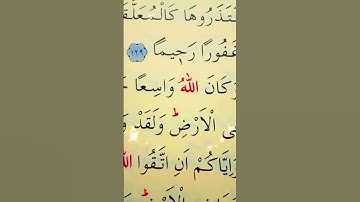 فَتَذَرُوهَا كَالْمُعَلَّقَ
غَفُورًا رَحٖيمًا ١٢٩
كَانَ اللّٰهُ وَاسِعًا حَ
الْاَرْضِؕ وَلَقَدْ وَ
وَاِيَّاكُمْ اَنِ اتَّقُوا اللّٰ
الْاَرْضِؕ